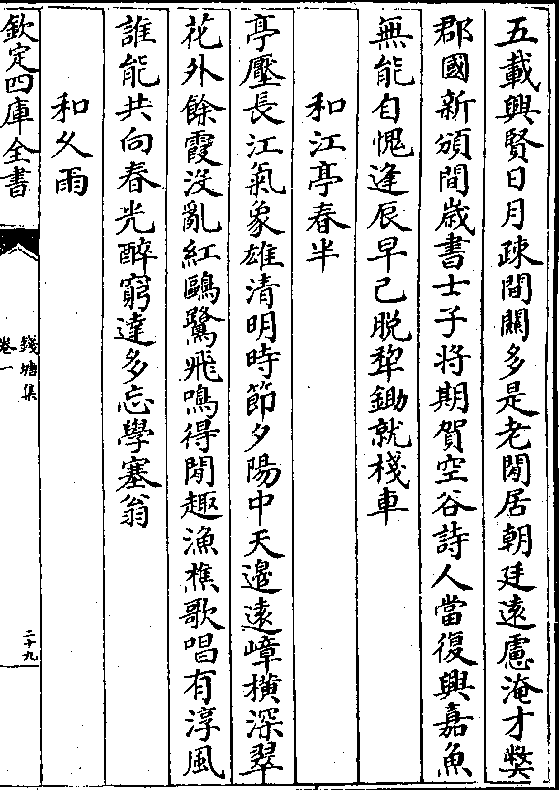 五載興賢日月疎間關多是老閒居朝廷遠慮淹才獘
郡國新頒間歲書士子將期賀空谷詩人當復興嘉魚
無能自愧逢辰早已脫犂鋤就棧車
和江亭春半
亭壓長江氣象雄清明時節夕陽中天邉遠嶂橫深翠
花外餘霞没亂紅鷗鷺飛鳴得閒趣漁樵歌唱有淳風
誰能共向春光醉窮達多忘學塞翁
和久雨
欽定四庫全書
錢塘集
卷一
二十九